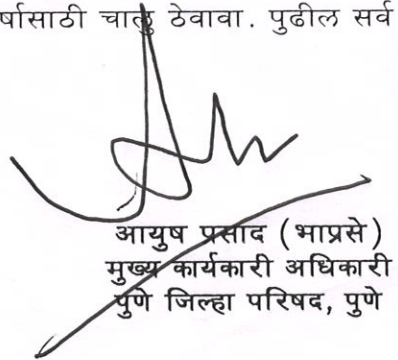 र्षासाठी चालु ठेवावा. पुढील सर्व
आयुष प्रसाद (भाप्रसे)
मुख्य कार्यकारी अधिकारी
पुणे जिल्हा परिषद, पुणे